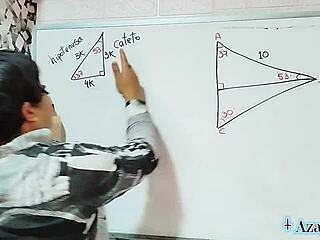 hipotenusa
cateto
53
5K
3K
37
4K
A
37
10
53
C
30
C
+ Aza